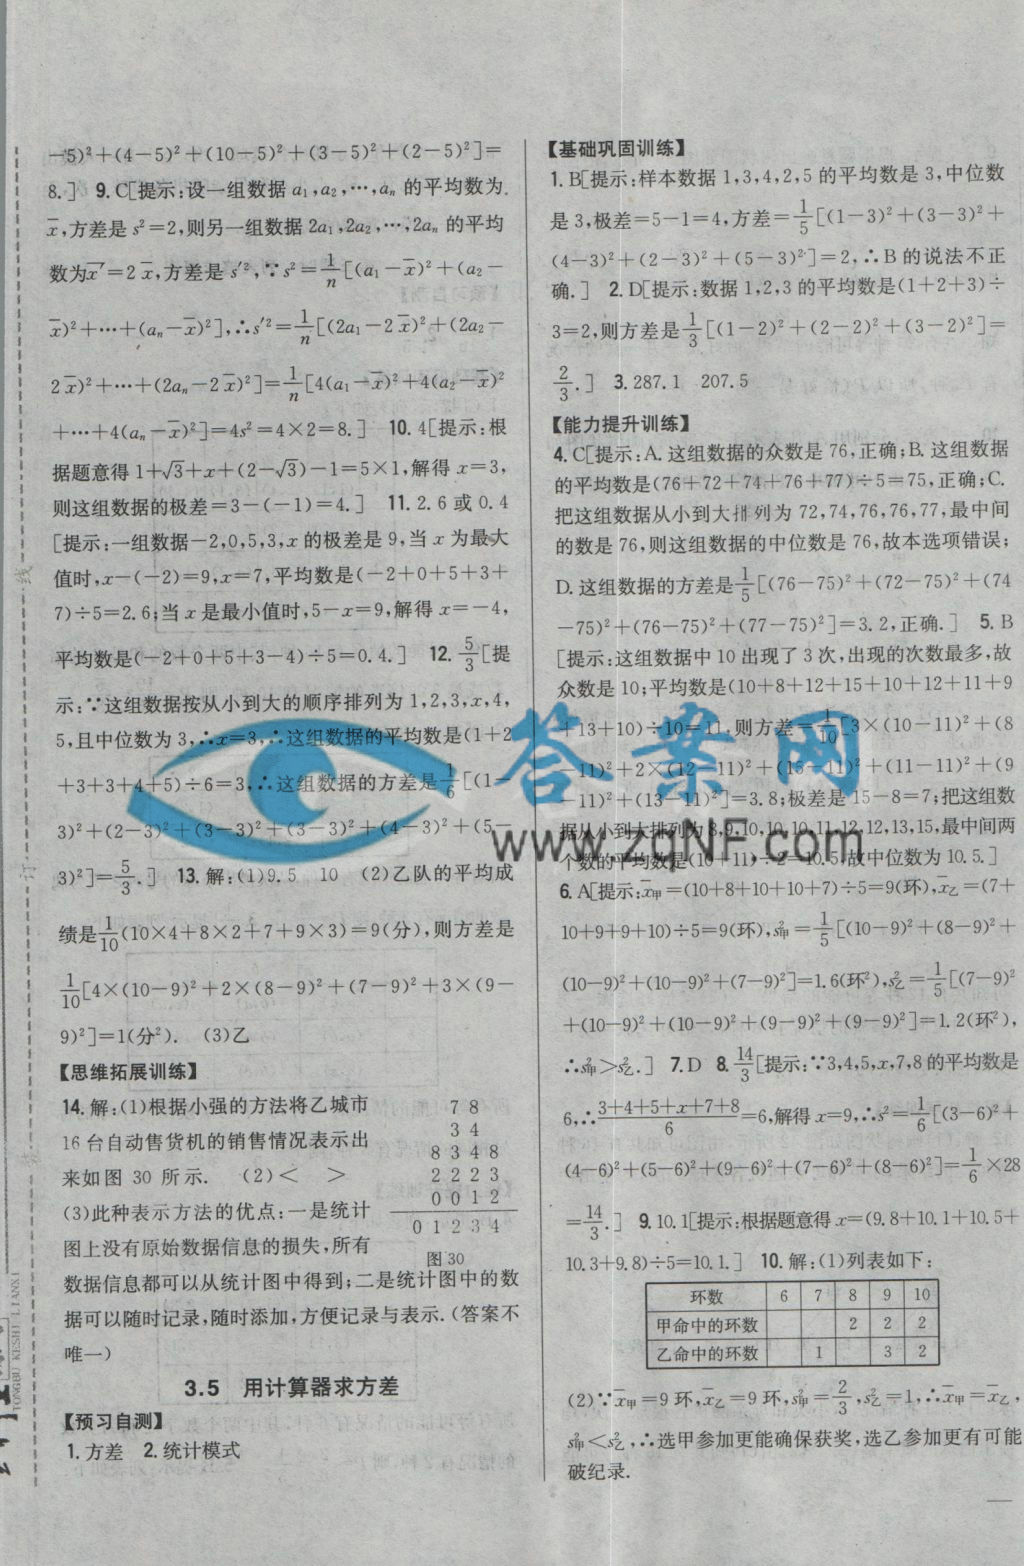 -5)²+(4-5)²+(10-5)²+(3-5)²+(2-5)²]=
8.] 9.C[提示:设一组数据a₁,a₂,…,aₙ的平均数为
x̄,方差是s²=2,则另一组数据2a₁,2a₂,…,2aₙ的平均
数为x̄′=2x̄,方差是s′²,∵s²=1/n[(a₁-x̄)²+(a₂-
x̄)²+…+(aₙ-x̄)²],∴s′²=1/n[(2a₁-2x̄)²+(2a₂-
2x̄)²+…+(2aₙ-2x̄)²]=1/n[4(a₁-x̄)²+4(a₂-x̄)²
+…+4(aₙ-x̄)²]=4s²=4×2=8.] 10.4[提示:根
据题意得1+√3+x+(2-√3)-1=5×1,解得x=3,
则这组数据的极差=3-(-1)=4.] 11.2.6或0.4
[提示:一组数据-2,0,5,3,x的极差是9,当x为最大
值时,x-(-2)=9,x=7,平均数是(-2+0+5+3+
7)÷5=2.6;当x是最小值时,5-x=9,解得x=-4,
平均数是(-2+0+5+3-4)÷5=0.4.] 12.5/3[提
示:∵这组数据按从小到大的顺序排列为1,2,3,x,4,
5,且中位数为3,∴x=3,∴这组数据的平均数是(1+2
+3+3+4+5)÷6=3,∴这组数据的方差是1/6[(1-
3)²+(2-3)²+(3-3)²+(3-3)²+(4-3)²+(5-
3)²]=5/3.] 13.解:(1)9.5 10 (2)乙队的平均成
绩是1/10(10×4+8×2+7+9×3)=9(分),则方差是
1/10[4×(10-9)²+2×(8-9)²+(7-9)²+3×(9-
9)²]=1(分²). (3)乙
【思维拓展训练】
14.解:(1)根据小强的方法将乙城市
16台自动售货机的销售情况表示出
来如图30所示. (2)< >
(3)此种表示方法的优点:一是统计
图上没有原始数据信息的损失,所有
7 8
3 4
8 3 4 8
2 2 2 3
0 0 1 2
0 1 2 3 4
图30
数据信息都可以从统计图中得到;二是统计图中的数
据可以随时记录,随时添加,方便记录与表示.(答案不
唯一)
3.5 用计算器求方差
【预习自测】
1.方差 2.统计模式
【基础巩固训练】
1.B[提示:样本数据1,3,4,2,5的平均数是3,中位数
是3,极差=5-1=4,方差=1/5[(1-3)²+(3-3)²+
(4-3)²+(2-3)²+(5-3)²]=2,∴B的说法不正
确.] 2.D[提示:数据1,2,3的平均数是(1+2+3)÷
3=2,则方差是1/3[(1-2)²+(2-2)²+(3-2)²]=
2/3.] 3.287.1 207.5
【能力提升训练】
4.C[提示:A.这组数据的众数是76,正确;B.这组数据
的平均数是(76+72+74+76+77)÷5=75,正确;C.
把这组数据从小到大排列为72,74,76,76,77,最中间
的数是76,则这组数据的中位数是76,故本选项错误;
D.这组数据的方差是1/5[(76-75)²+(72-75)²+(74
-75)²+(76-75)²+(77-75)²]=3.2,正确.] 5.B
[提示:这组数据中10出现了3次,出现的次数最多,故
众数是10;平均数是(10+8+12+15+10+12+11+9
+13+10)÷10=11,则方差=1/10[3×(10-11)²+(8
-11)²+2×(12-11)²+(15-11)²+(11-11)²+(9
-11)²+(13-11)²]=3.8;极差是15-8=7;把这组数
据从小到大排列为8,9,10,10,10,11,12,12,13,15,最中间两
个数的平均数是(10+11)÷2=10.5,故中位数为10.5.]
6.A[提示:x̄甲=(10+8+10+10+7)÷5=9(环),x̄乙=(7+
10+9+9+10)÷5=9(环),s²甲=1/5[(10-9)²+(8-9)²+
(10-9)²+(10-9)²+(7-9)²]=1.6(环²),s²乙=1/5[(7-9)²
+(10-9)²+(10-9)²+(9-9)²+(9-9)²]=1.2(环²),
∴s²甲>s²乙.] 7.D 8.14/3[提示:∵3,4,5,x,7,8的平均数是
6,∴(3+4+5+x+7+8)/6=6,解得x=9,∴s²=1/6[(3-6)²+
(4-6)²+(5-6)²+(9-6)²+(7-6)²+(8-6)²]=1/6×28
=14/3.] 9.10.1[提示:根据题意得x=(9.8+10.1+10.5+
10.3+9.8)÷5=10.1.] 10.解:(1)列表如下:
环数 6 7 8 9 10
甲命中的环数 2 2 2
乙命中的环数 1 3 2
(2)∵x̄甲=9环,x̄乙=9环,s²甲=2/3,s²乙=1,∴x̄甲=x̄乙,
s²甲<s²乙,∴选甲参加更能确保获奖,选乙参加更有可能
破纪录.
答案网
www.zqNF.com
线
订
TONGBU KESHI LIANXI